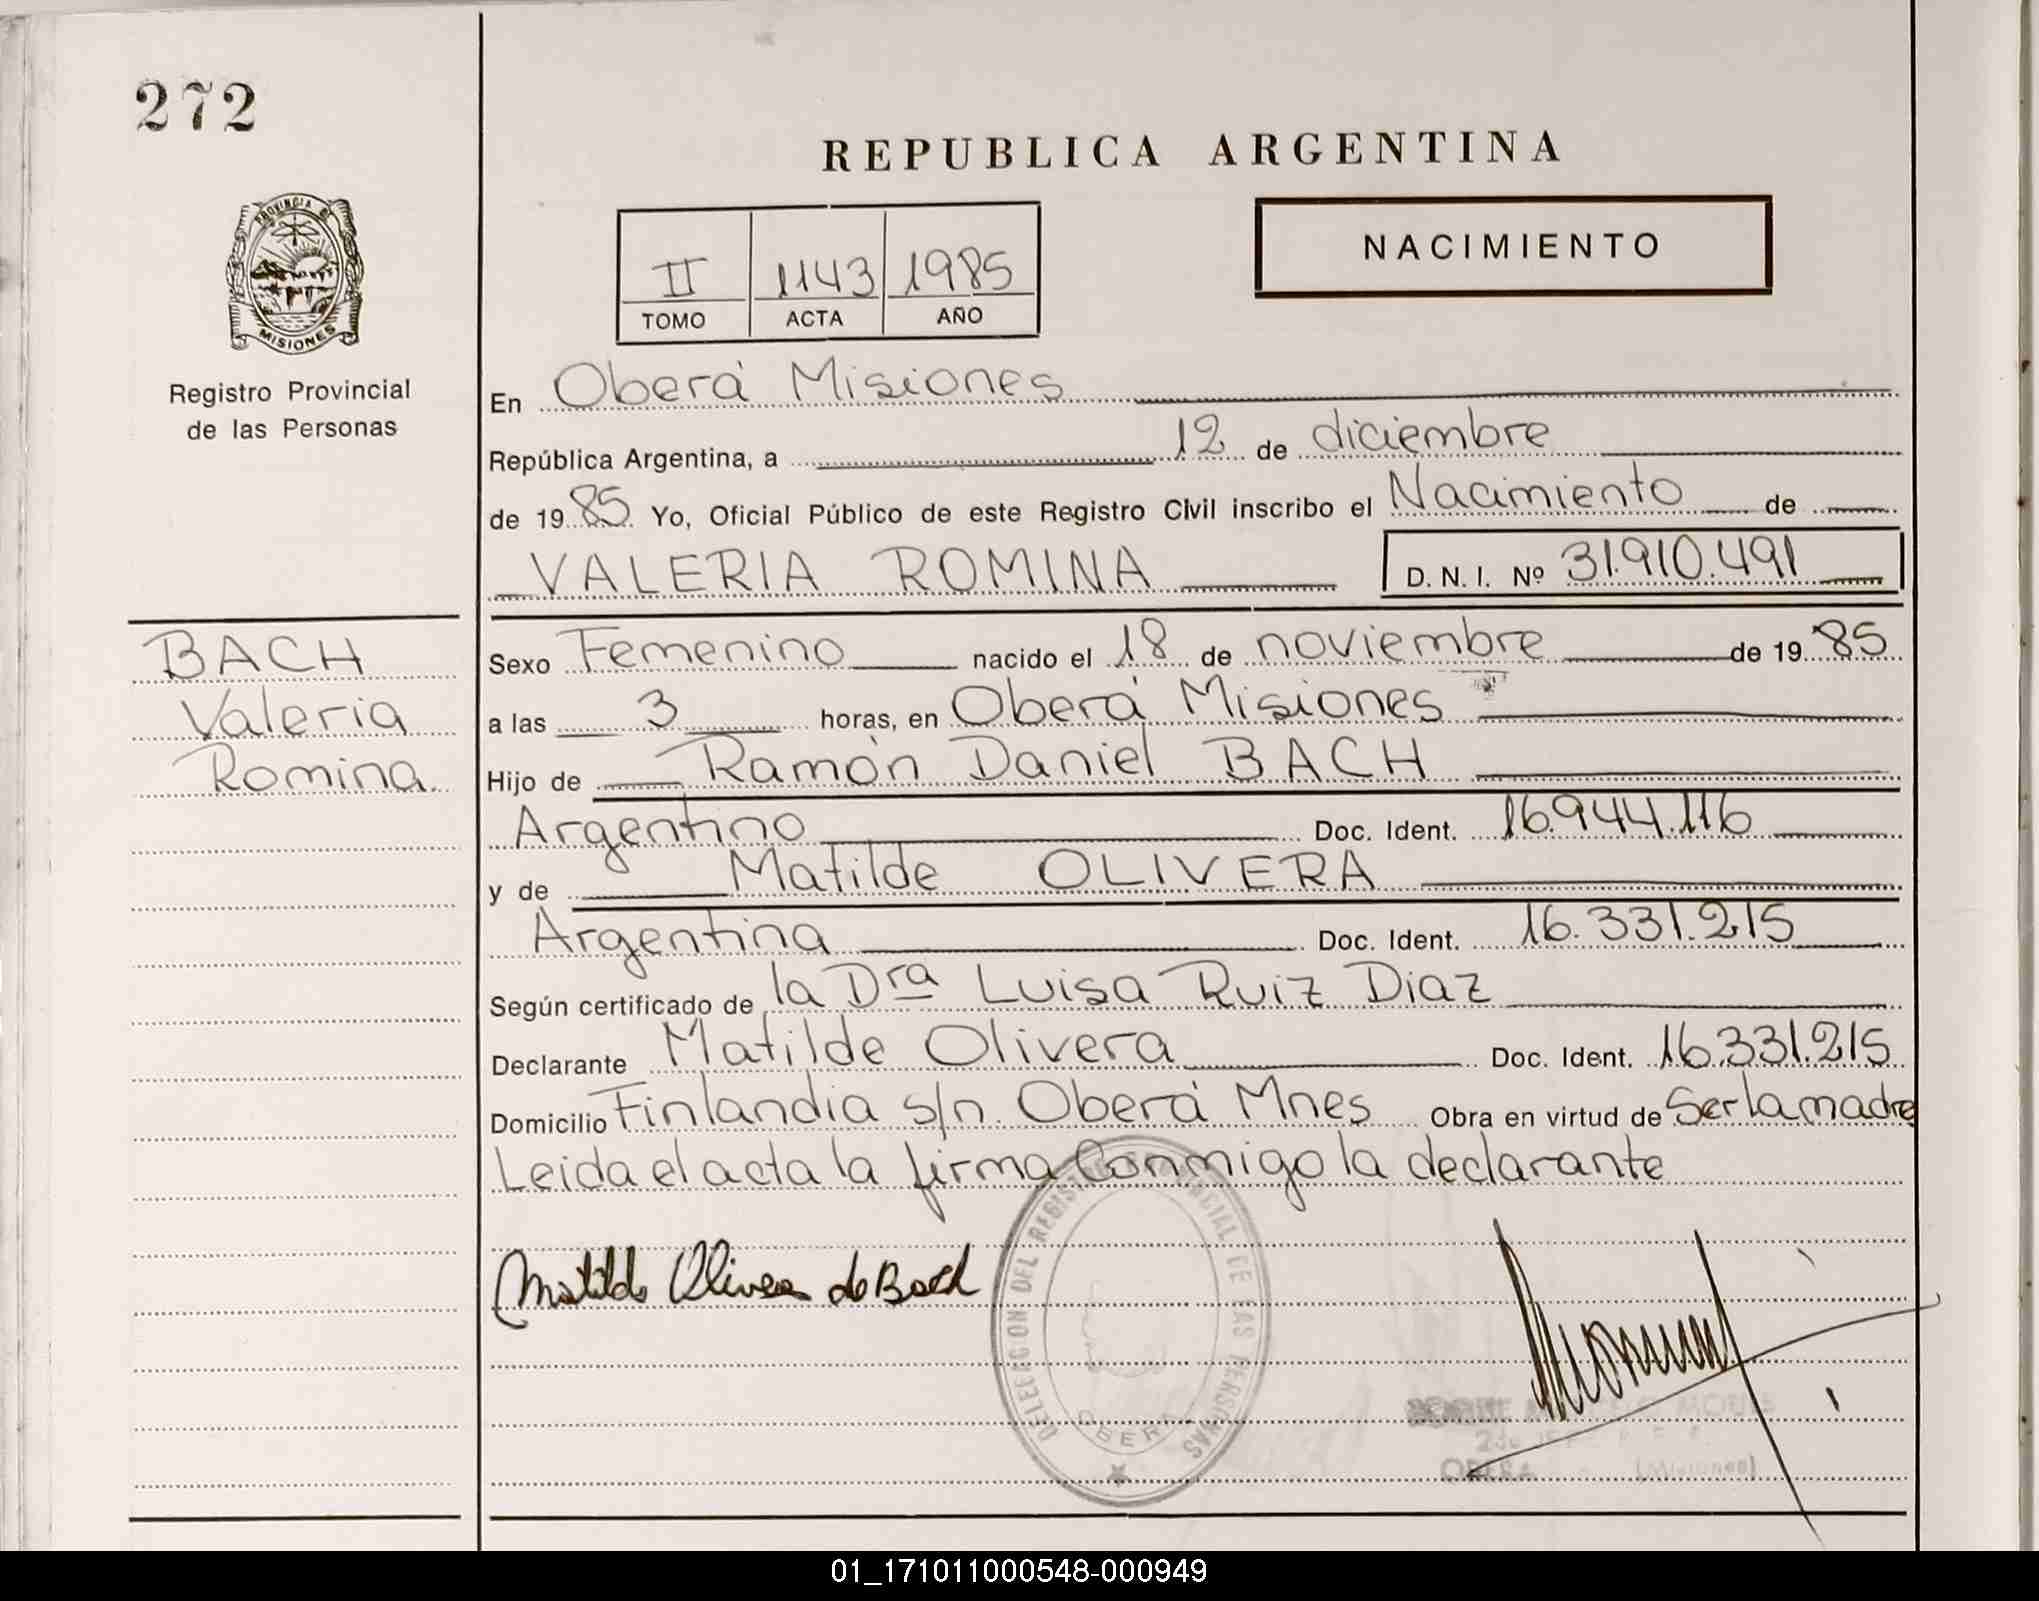 272
REPUBLICA ARGENTINA
PROVINCIA DE
MISIONES
Registro Provincial
de las Personas
II 1143 1985
TOMO ACTA AÑO
NACIMIENTO
En Oberá Misiones
República Argentina, a 12 de diciembre
de 1985 Yo, Oficial Público de este Registro Civil inscribo el Nacimiento de
VALERIA ROMINA D. N. I. Nº 31.910.491
BACH
Valeria
Romina.
Sexo Femenino nacido el 18 de noviembre de 1985
a las 3 horas, en Oberá Misiones
Hijo de Ramón Daniel BACH
Argentino Doc. Ident. 16.944.116
y de Matilde OLIVERA
Argentina Doc. Ident. 16.331.215
Según certificado de la Dra Luisa Ruiz Diaz
Declarante Matilde Olivera Doc. Ident. 16.331.215
Domicilio Finlandia s/n. Oberá Mnes Obra en virtud de Ser la madre
Leida el acta la firma Conmigo la declarante
Matilde Olivera de Bach
DELEGACION DEL REGISTRO PROVINCIAL DE LAS PERSONAS
OBERA
OBERA (Misiones)
01_171011000548-000949